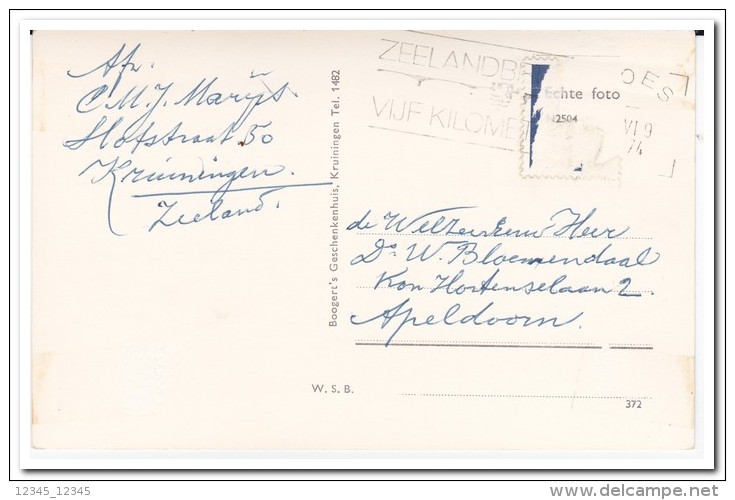 Afz.
C.M.J. Marijs.
Hofstraat 50
Kruiningen.
Zeeland.
Boogert's Geschenkenhuis, Kruiningen Tel. 1482
ZEELANDB
VIJF KILOME
OES
VI 9
74
Echte foto
N2504
de Heer
Ds W. Bloemendaal
Kon Hortenselaan 2.
Apeldoorn.
W. S. B.
372
12345_12345
delcampe.net